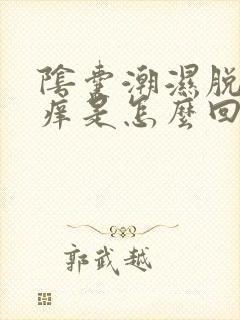 陰囊潮濕脫
痒是怎麼回
郭武越